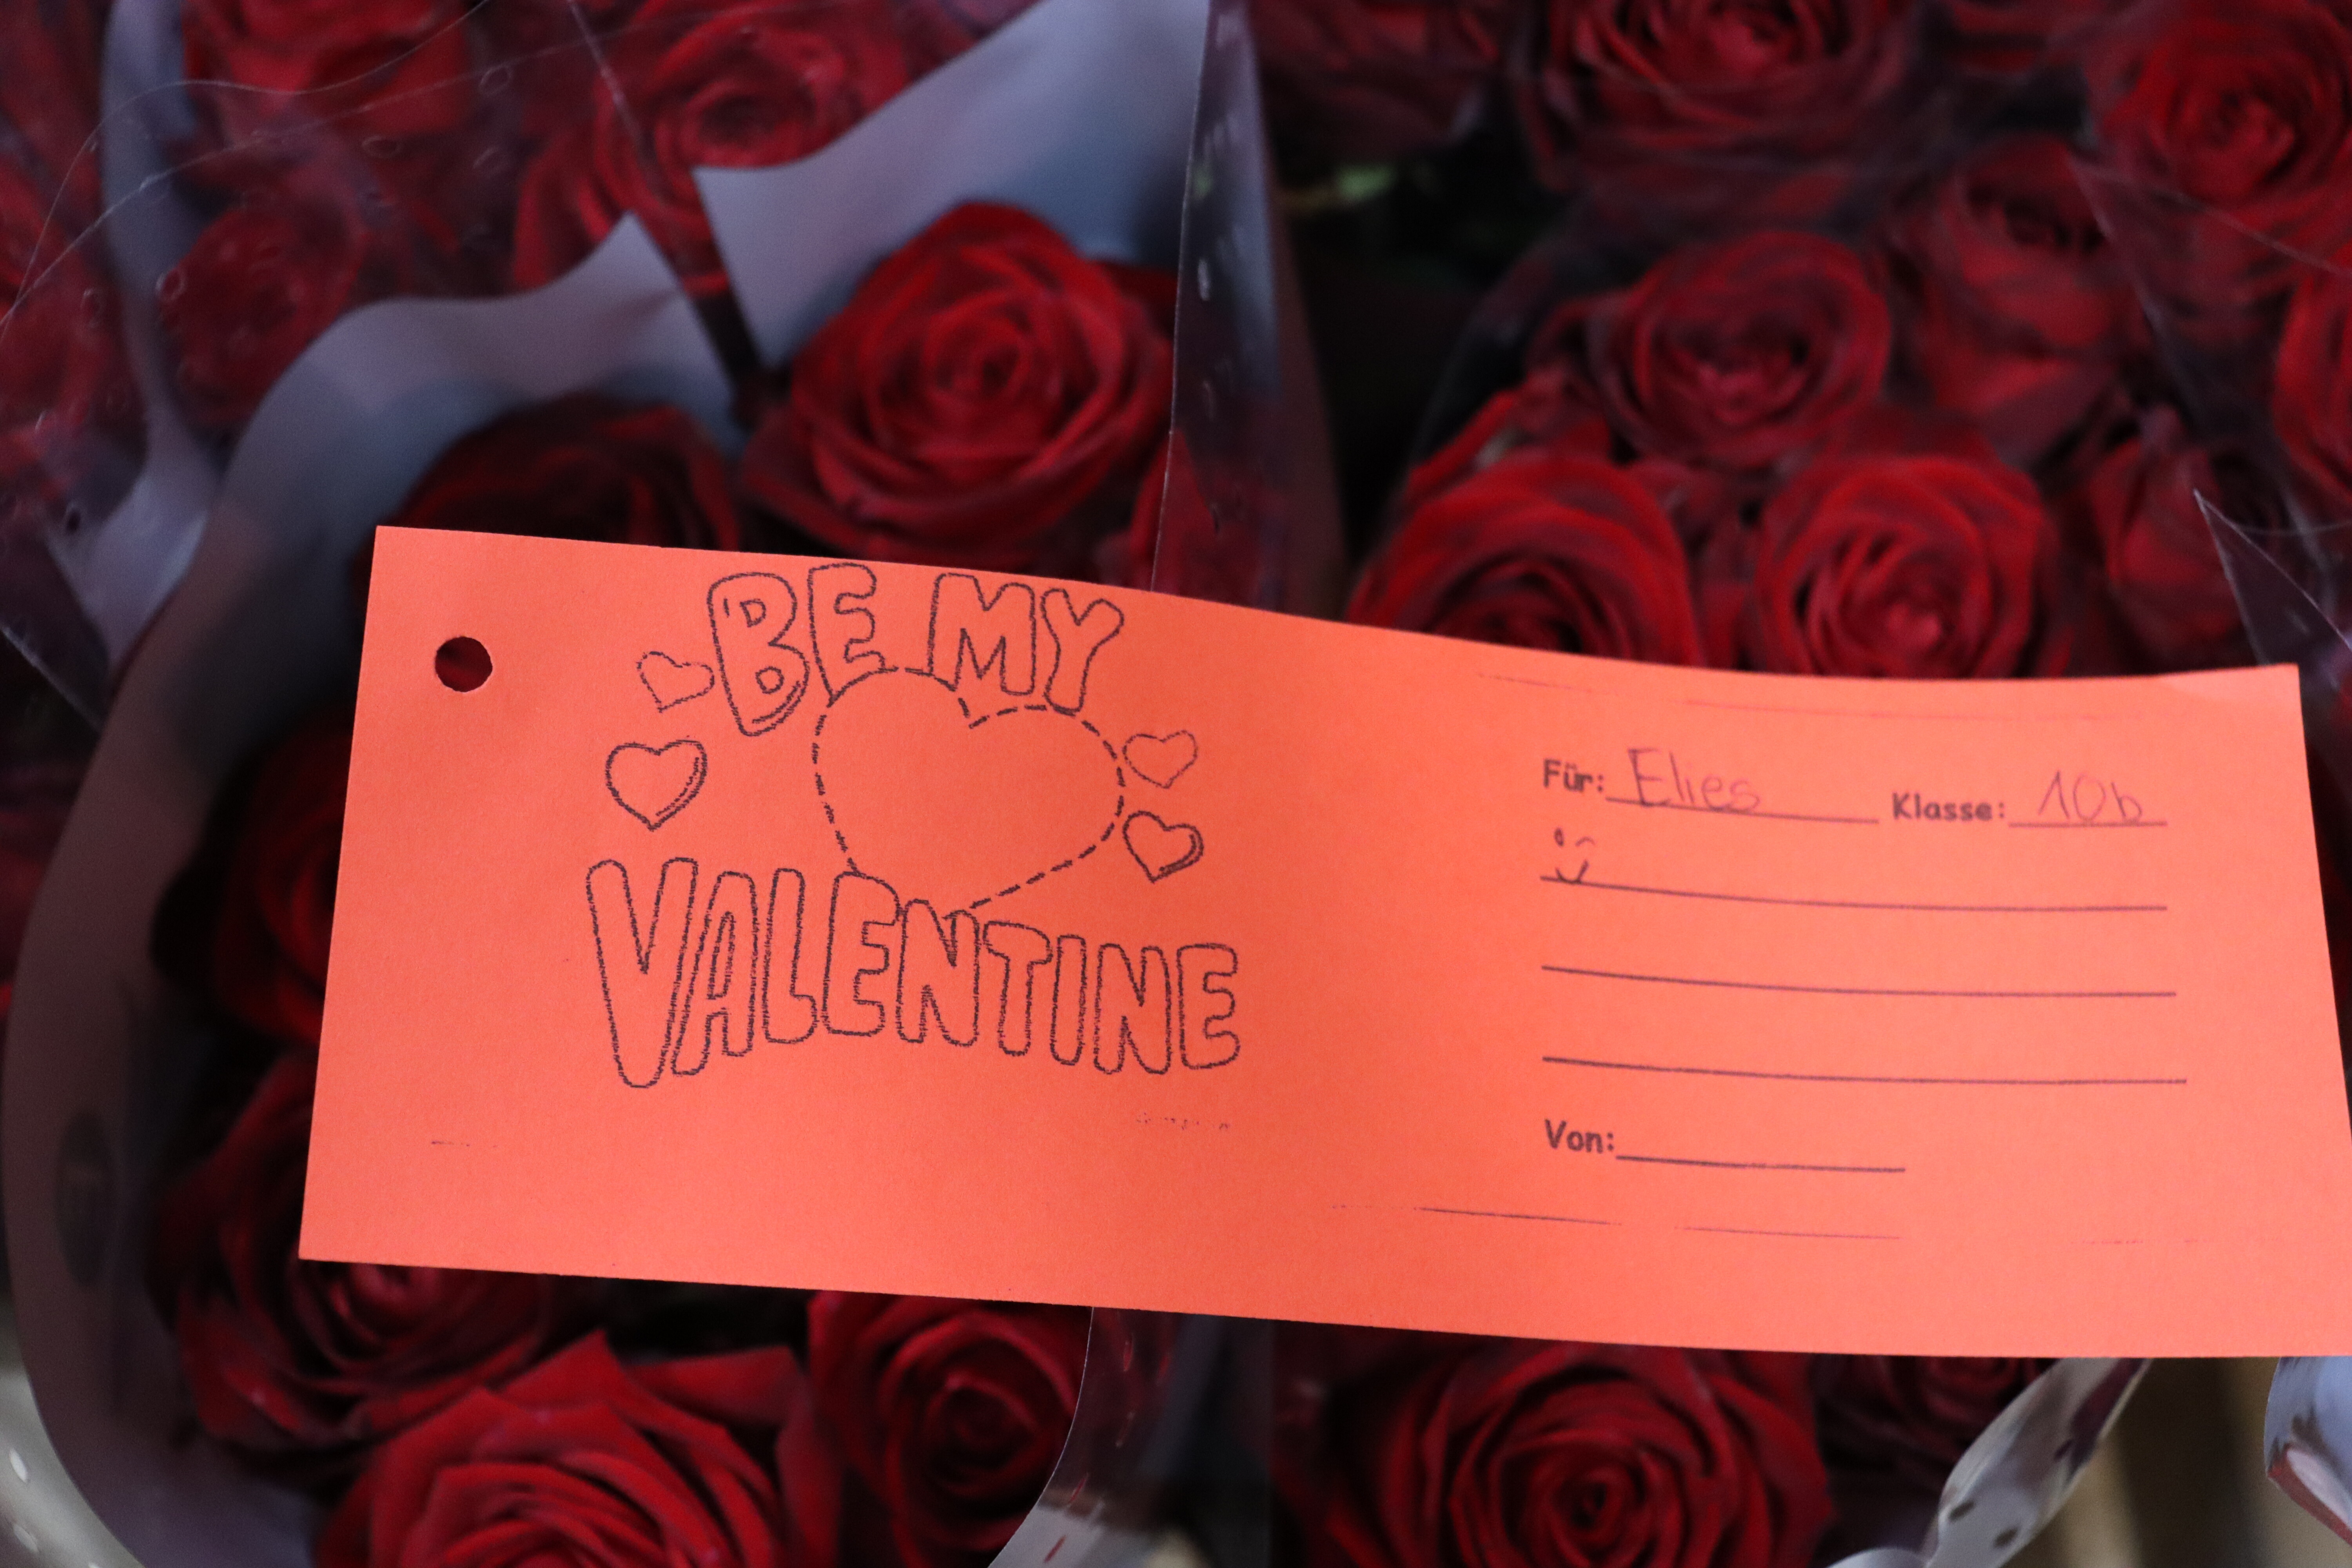 BE MY
VALENTINE
Für: Elies Klasse: 10b
Von: